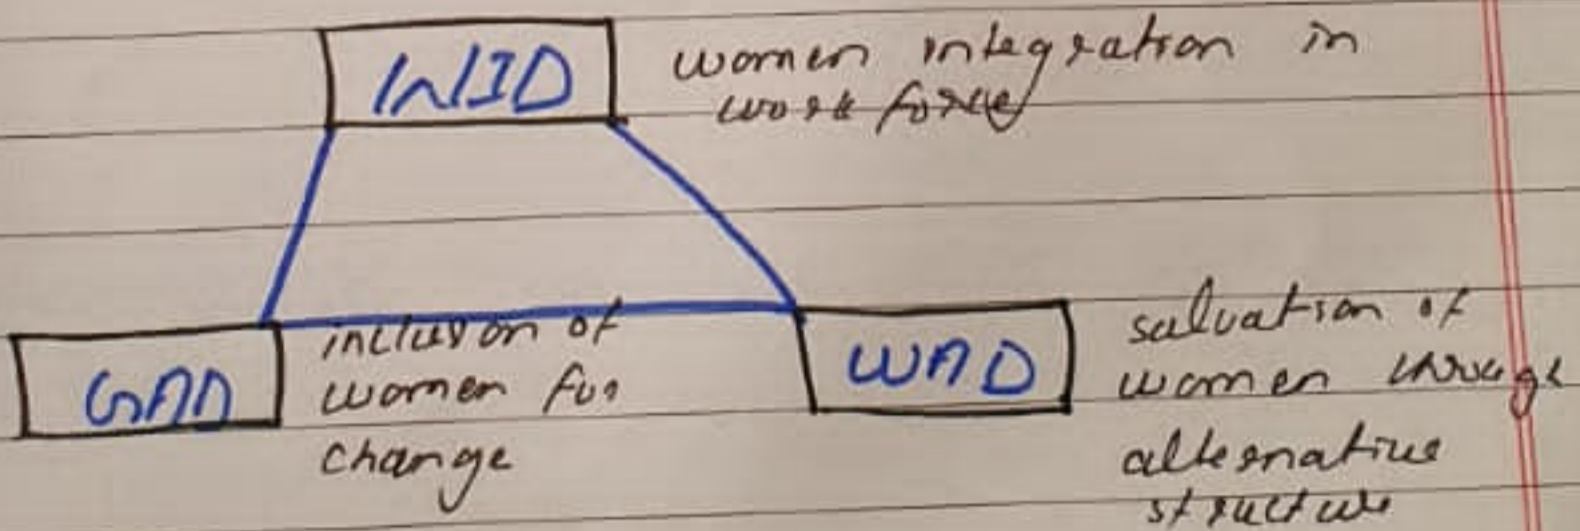 WID
women integration in
work force
GAD
inclusion of
women for
change
WAD
salvation of
women through
alternative
structure